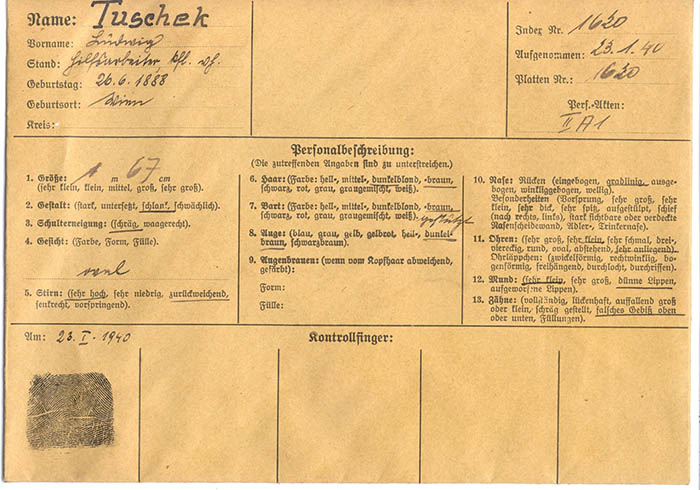 Name: Tuschek
Vorname: Ludwig
Stand: Hilfsarbeiter, kfl. vh.
Geburtstag: 26.6.1888
Geburtsort: Wien
Kreis:
Index Nr. 1620
Aufgenommen: 23.1.40
Platten Nr.: 1620
Pers.-Akten:
II A1
Personalbeschreibung:
(Die zutreffenden Angaben sind zu unterstreichen.)
1. Größe: 1 m 67 cm
(sehr klein, klein, mittel, groß, sehr groß).
2. Gestalt: (stark, untersetzt, schlank, schwächlich).
3. Schulterneigung: (schräg, waagerecht).
4. Gesicht: (Farbe, Form, Fülle).
oval
5. Stirn: (sehr hoch, sehr niedrig, zurückweichend,
senkrecht, vorspringend).
6. Haar: (Farbe: hell-, mittel-, dunkelblond, -braun,
schwarz, rot, grau, graugemischt, weiß).
7. Bart: (Farbe: hell-, mittel-, dunkelblond, -braun,
schwarz, rot, grau, graugemischt, weiß). gestutzt
8. Auge: (blau, grau, gelb, gelbrot, hell-, dunkel-
braun, schwarzbraun).
9. Augenbrauen: (wenn vom Kopfhaar abweichend,
gefärbt):
Form:
Fülle:
10. Nase: Rücken (eingebogen, gradlinig, ausge-
bogen, winkliggebogen, wellig).
Besonderheiten (Vorsprung, sehr groß, sehr
klein, sehr dick, sehr spitz, aufgestülpt, schief
(nach rechts, links), stark sichtbare oder verdeckte
Nasenscheidewand, Adler-, Trinkernase).
11. Ohren: (sehr groß, sehr klein, sehr schmal, drei-
viereckig, rund, oval, abstehend, sehr anliegend).
Ohrläppchen: (zwickelförmig, rechtwinklig, bo-
genförmig, freihängend, durchlocht, durchrissen).
12. Mund: (sehr klein, sehr groß, dünne Lippen,
aufgeworfne Lippen).
13. Zähne: (vollständig, lückenhaft, auffallend groß
oder klein, schräg gestellt, falsches Gebiß oben
oder unten, Füllungen).
Am: 23. I. 1940
Kontrollfinger: